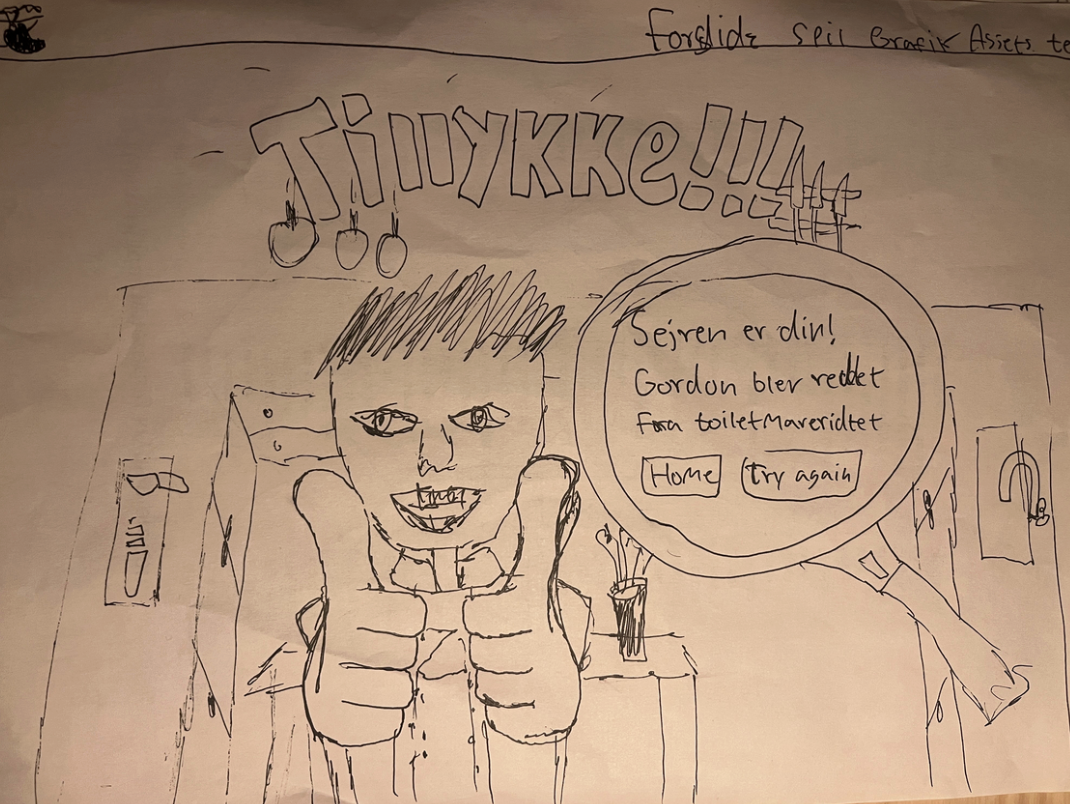 Forside Spil Grafik Assets te
Tillykke!!!!
Sejren er din!
Gordon blev reddet
Fra toiletmareridtet
Home Try again